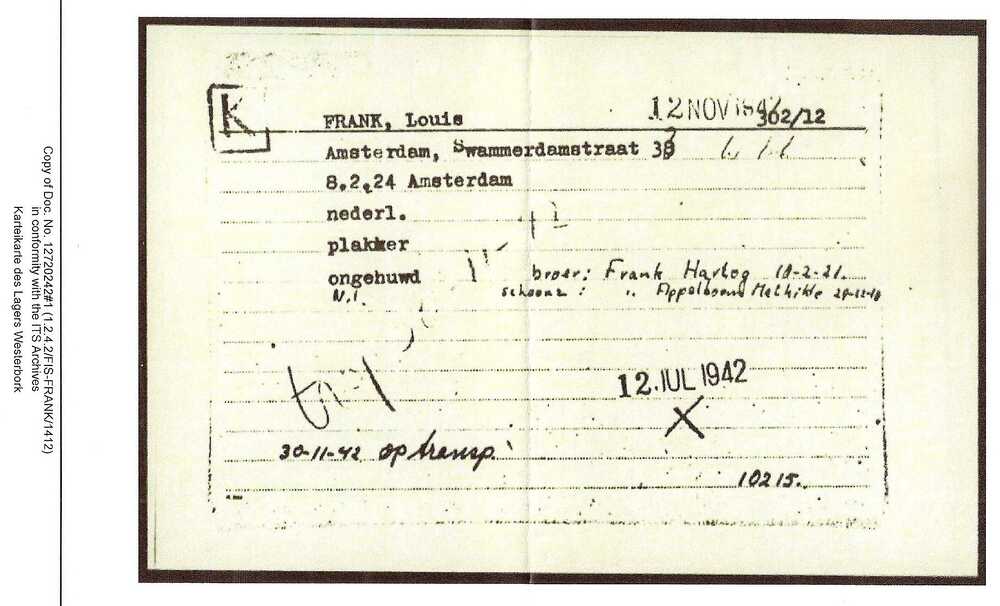 Copy of Doc. No. 12720242#1 (1.2.4.2/FIS-FRANK/1412)
in conformity with the ITS Archives
Karteikarte des Lagers Westerbork
K
12 NOV 1942
FRANK, Louis 302/12
Amsterdam, Swammerdamstraat 38
8.2.24 Amsterdam
nederl.
plakker
ongehuwd broer: Frank Hartog 10-2-21.
N.I. schoonz: " Appelboom Mathilde
12.JUL 1942
X
30-11-42 op transp.
10215.